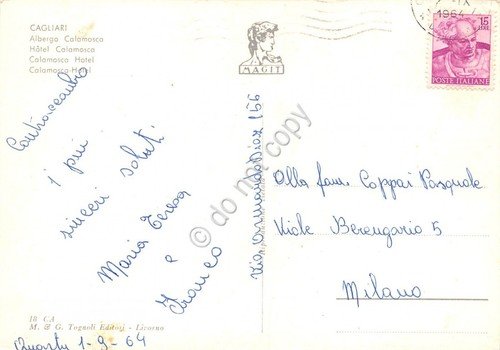 CAGLIARI
Albergo Calamosca
Hôtel Calamosca
Calamosca Hotel
Calamosca-Hotel
MAGIT
1964
15
LIRE
POSTE ITALIANE
Contraccambio
i più
sinceri saluti
Maria Teresa
e
Franco
Via Armando Diaz 166
Alla fam. Coppai Pasquale
Viale Berengario 5
Milano
do not copy
III CA
M. & G. Tognoli Editori - Livorno
Quartu 1-9-64